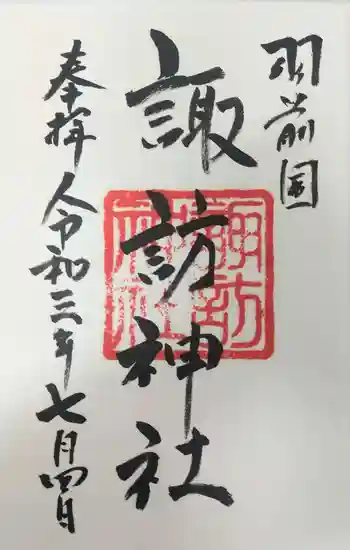 羽前国
諏訪神社
奉拝 令和三年七月四日